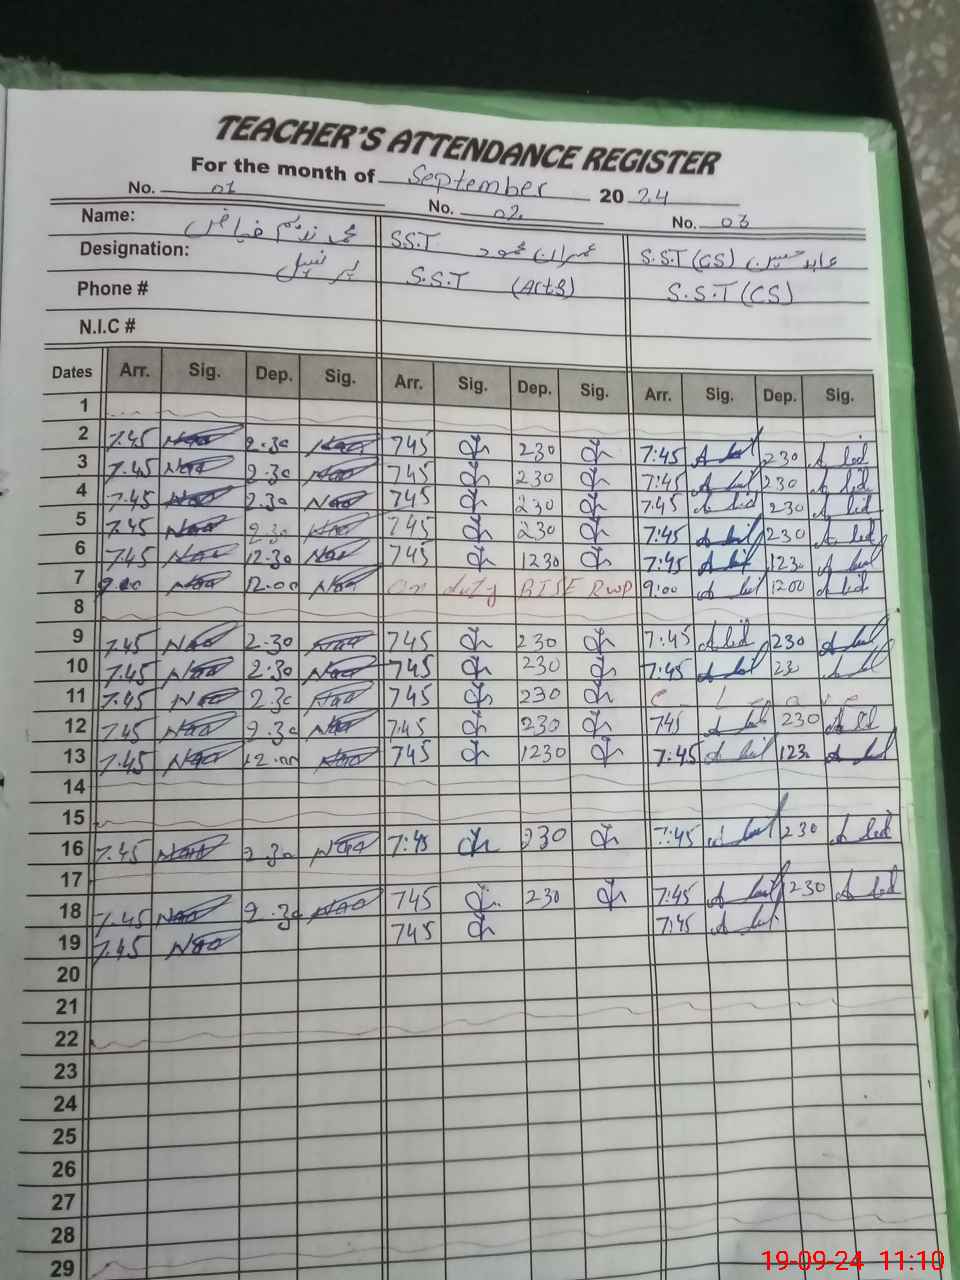 TEACHER'S ATTENDANCE REGISTER
For the month of September 2024
No. 01 No. 02 No. 03
Name: محمد ندیم فیاض SST عمران محمود S.S.T (CS) عابد حسین
Designation: پرنسپل S.S.T (Arts) S.S.T (CS)
Phone #
N.I.C #
Dates Arr. Sig. Dep. Sig. Arr. Sig. Dep. Sig. Arr. Sig. Dep. Sig.
1
2 7.45 2.30 745 230 7:45 Abid 230 Abid
3 7.45 2.30 745 230 7:45 Abid 230 Abid
4 7.45 2.30 745 230 7:45 Abid 230 Abid
5 7.45 2.30 745 230 7:45 Abid 230 Abid
6 7.45 12.30 745 1230 7:45 Abid 1230 Abid
7 9.00 12.00 on duty BISE Rwp 9:00 Abid 1200 Abid
8
9 7.45 2.30 745 230 7:45 Abid 230 Abid
10 7.45 2.30 745 230 7:45 Abid 230 Abid
11 7.45 2.30 745 230
12 7.45 2.30 7.45 230 745 Abid 230 Abid
13 7.45 12.00 745 1230 7:45 Abid 123 Abid
14
15
16 7.45 2.30 7:45 230 7:45 Abid 230 Abid
17
18 7.45 2.30 745 230 7:45 Abid 230 Abid
19 7.45 745 7:45 Abid
20
21
22
23
24
25
26
27
28
29
19-09-24 11:10